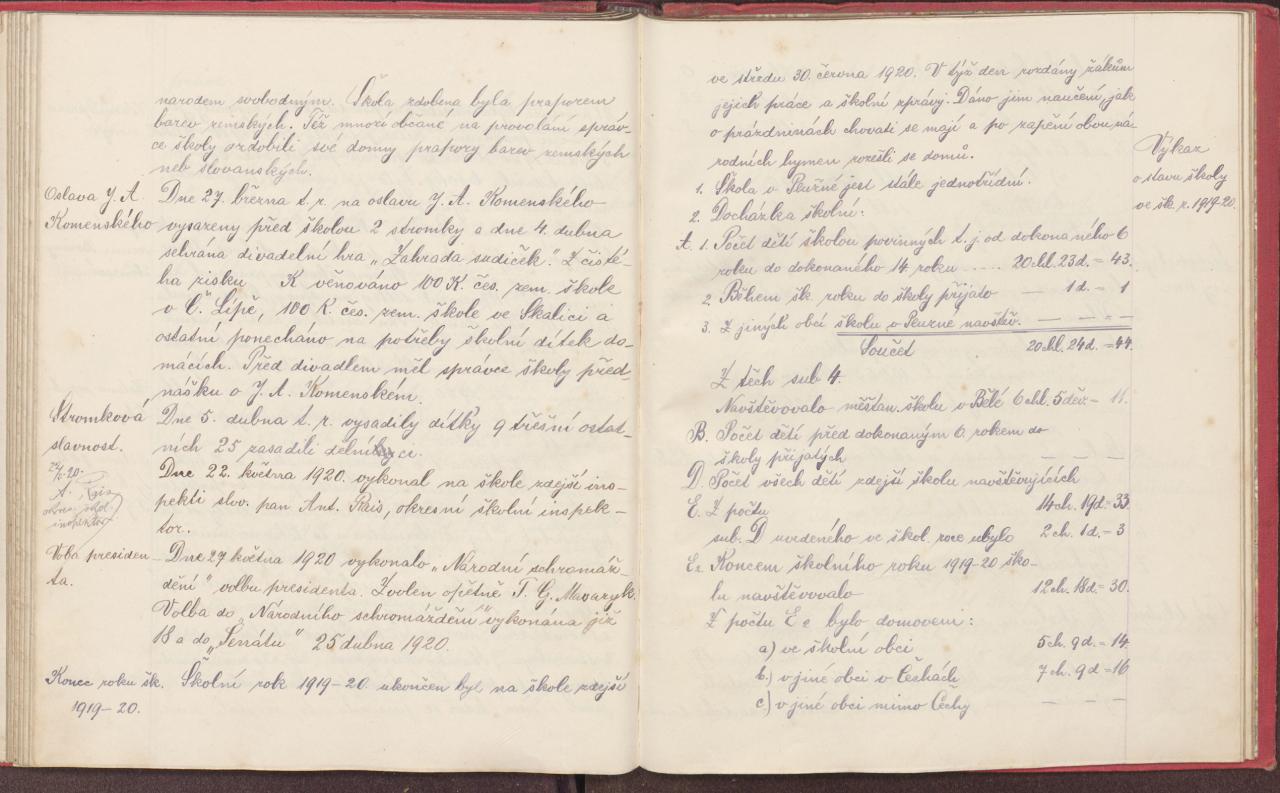 narodem svobodným. Škola zdobena byla praporem
barev zemských. Též mnozí občané na provolání správ-
ce školy ozdobili své domy prapory barev zemských
neb slovanských.
Oslava J. A. Komenského
Dne 27. března t. r. na oslavu J. A. Komenského
vysazeny před školou 2 stromky a dne 4. dubna
sehrána divadelní hra „Zahrada sudiček“. Z čisté-
ha zisku K věnováno 100 K. čes. zem. škole
v Č. Lípě, 100 K. čes. zem. škole ve Skalici a
ostatní ponecháno na potřeby školní dítek do-
mácích. Před divadlem měl správce školy před-
nášku o J. A. Komenském.
Stromková slavnost.
Dne 5. dubna t. r. vysadily dítky 9 třešní ostat-
ních 25 zasadili dělníci.
Dne 22. května 1920 vykonal na škole zdejší ins-
pekti slov. pan Ant. Rais, okresní školní inspek-
tor.
A. Rais
okres. škol.
inspektor
Volba presiden-
ta.
Dne 27 května 1920 vykonalo „Národní schromáž-
dění“ volbu presidenta. Zvolen opětně T. G. Masaryk.
Volba do „Národního schromáždění“ vykonána již
18 a do „Senátu“ 25 dubna 1920.
Konec roku šk.
1919-20.
Školní rok 1919-20. ukončen byl na škole zdejší
ve středu 30. června 1920. V týž den rozdány žákům
jejich práce a školní zprávy. Dáno jim naučení, jak
o prázdninách chovati se mají a po zapění obou ná-
rodních hymen rozešli se domů.
Výkaz
o stavu školy
ve šk. r. 1919-20.
1. Škola v jest stále jednotřídní.
2. Docházka školní:
A. 1. Počet dětí školou povinných t. j. od dokonaného 6
roku do dokonaného 14 roku ..... 20 chl. 23 d. = 43.
2. Během šk. roku do školy přijato — 1 d. = 1
3. Z jiných obcí školu v navštěv. — — = —
Součet 20 chl. 24 d. = 44.
Z těch sub 4.
Navštěvovalo měšťan. školu v Bělé 6 chl. 5 děv = 11.
B. Počet dětí před dokonaným 6. rokem do
školy přijatých — — —
D. Počet všech dětí zdejší školu navštěvujících
14 ch. 19 d. = 33
E. Z počtu
sub. D uvedeného ve škol. roce ubylo 2 ch. 1 d. = 3
Ee Koncem školního roku 1919-20 ško-
lu navštěvovalo 12 ch. 18 d. = 30.
Z počtu E e bylo domovem:
a) ve školní obci 5 ch. 9 d. = 14
b.) v jiné obci v Čechách 7 ch. 9 d = 16
c) v jiné obci mimo Čechy — — —